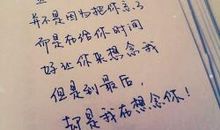 并不是因为把你忘了
却是在给你时间
好让你来想念我
但是到最后，
却是我在想念你！